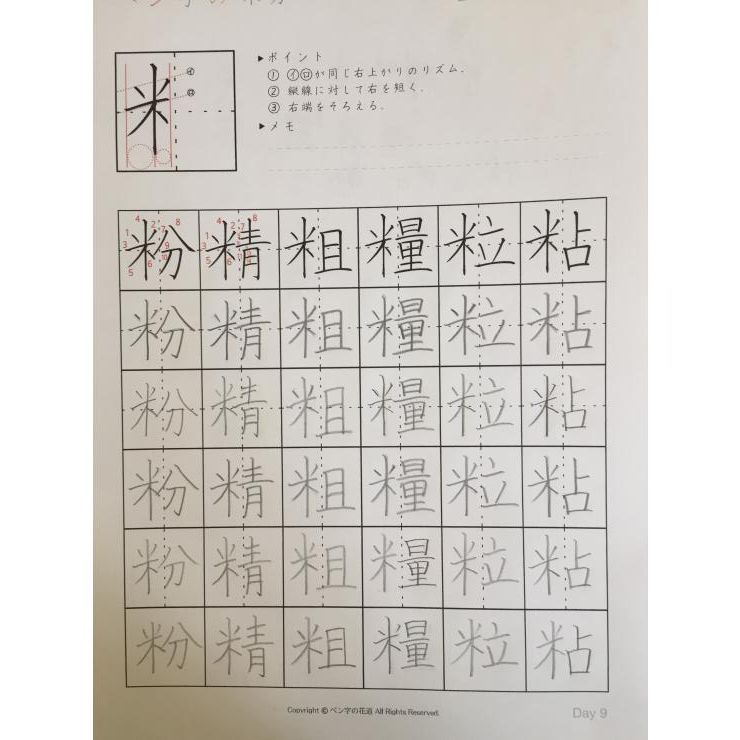 ▶ポイント
① ㋑㋺が同じ右上がりのリズム.
② 縦線に対して右を短く.
③ 右端をそろえる.
▶メモ
米
㋑
㋺
粉 精 粗 糧 粒 粘
粉 精 粗 糧 粒 粘
粉 精 粗 糧 粒 粘
粉 精 粗 糧 粒 粘
粉 精 粗 糧 粒 粘
粉 精 粗 糧 粒 粘
Copyright © ペン字の花道 All Rights Reserved.
Day 9